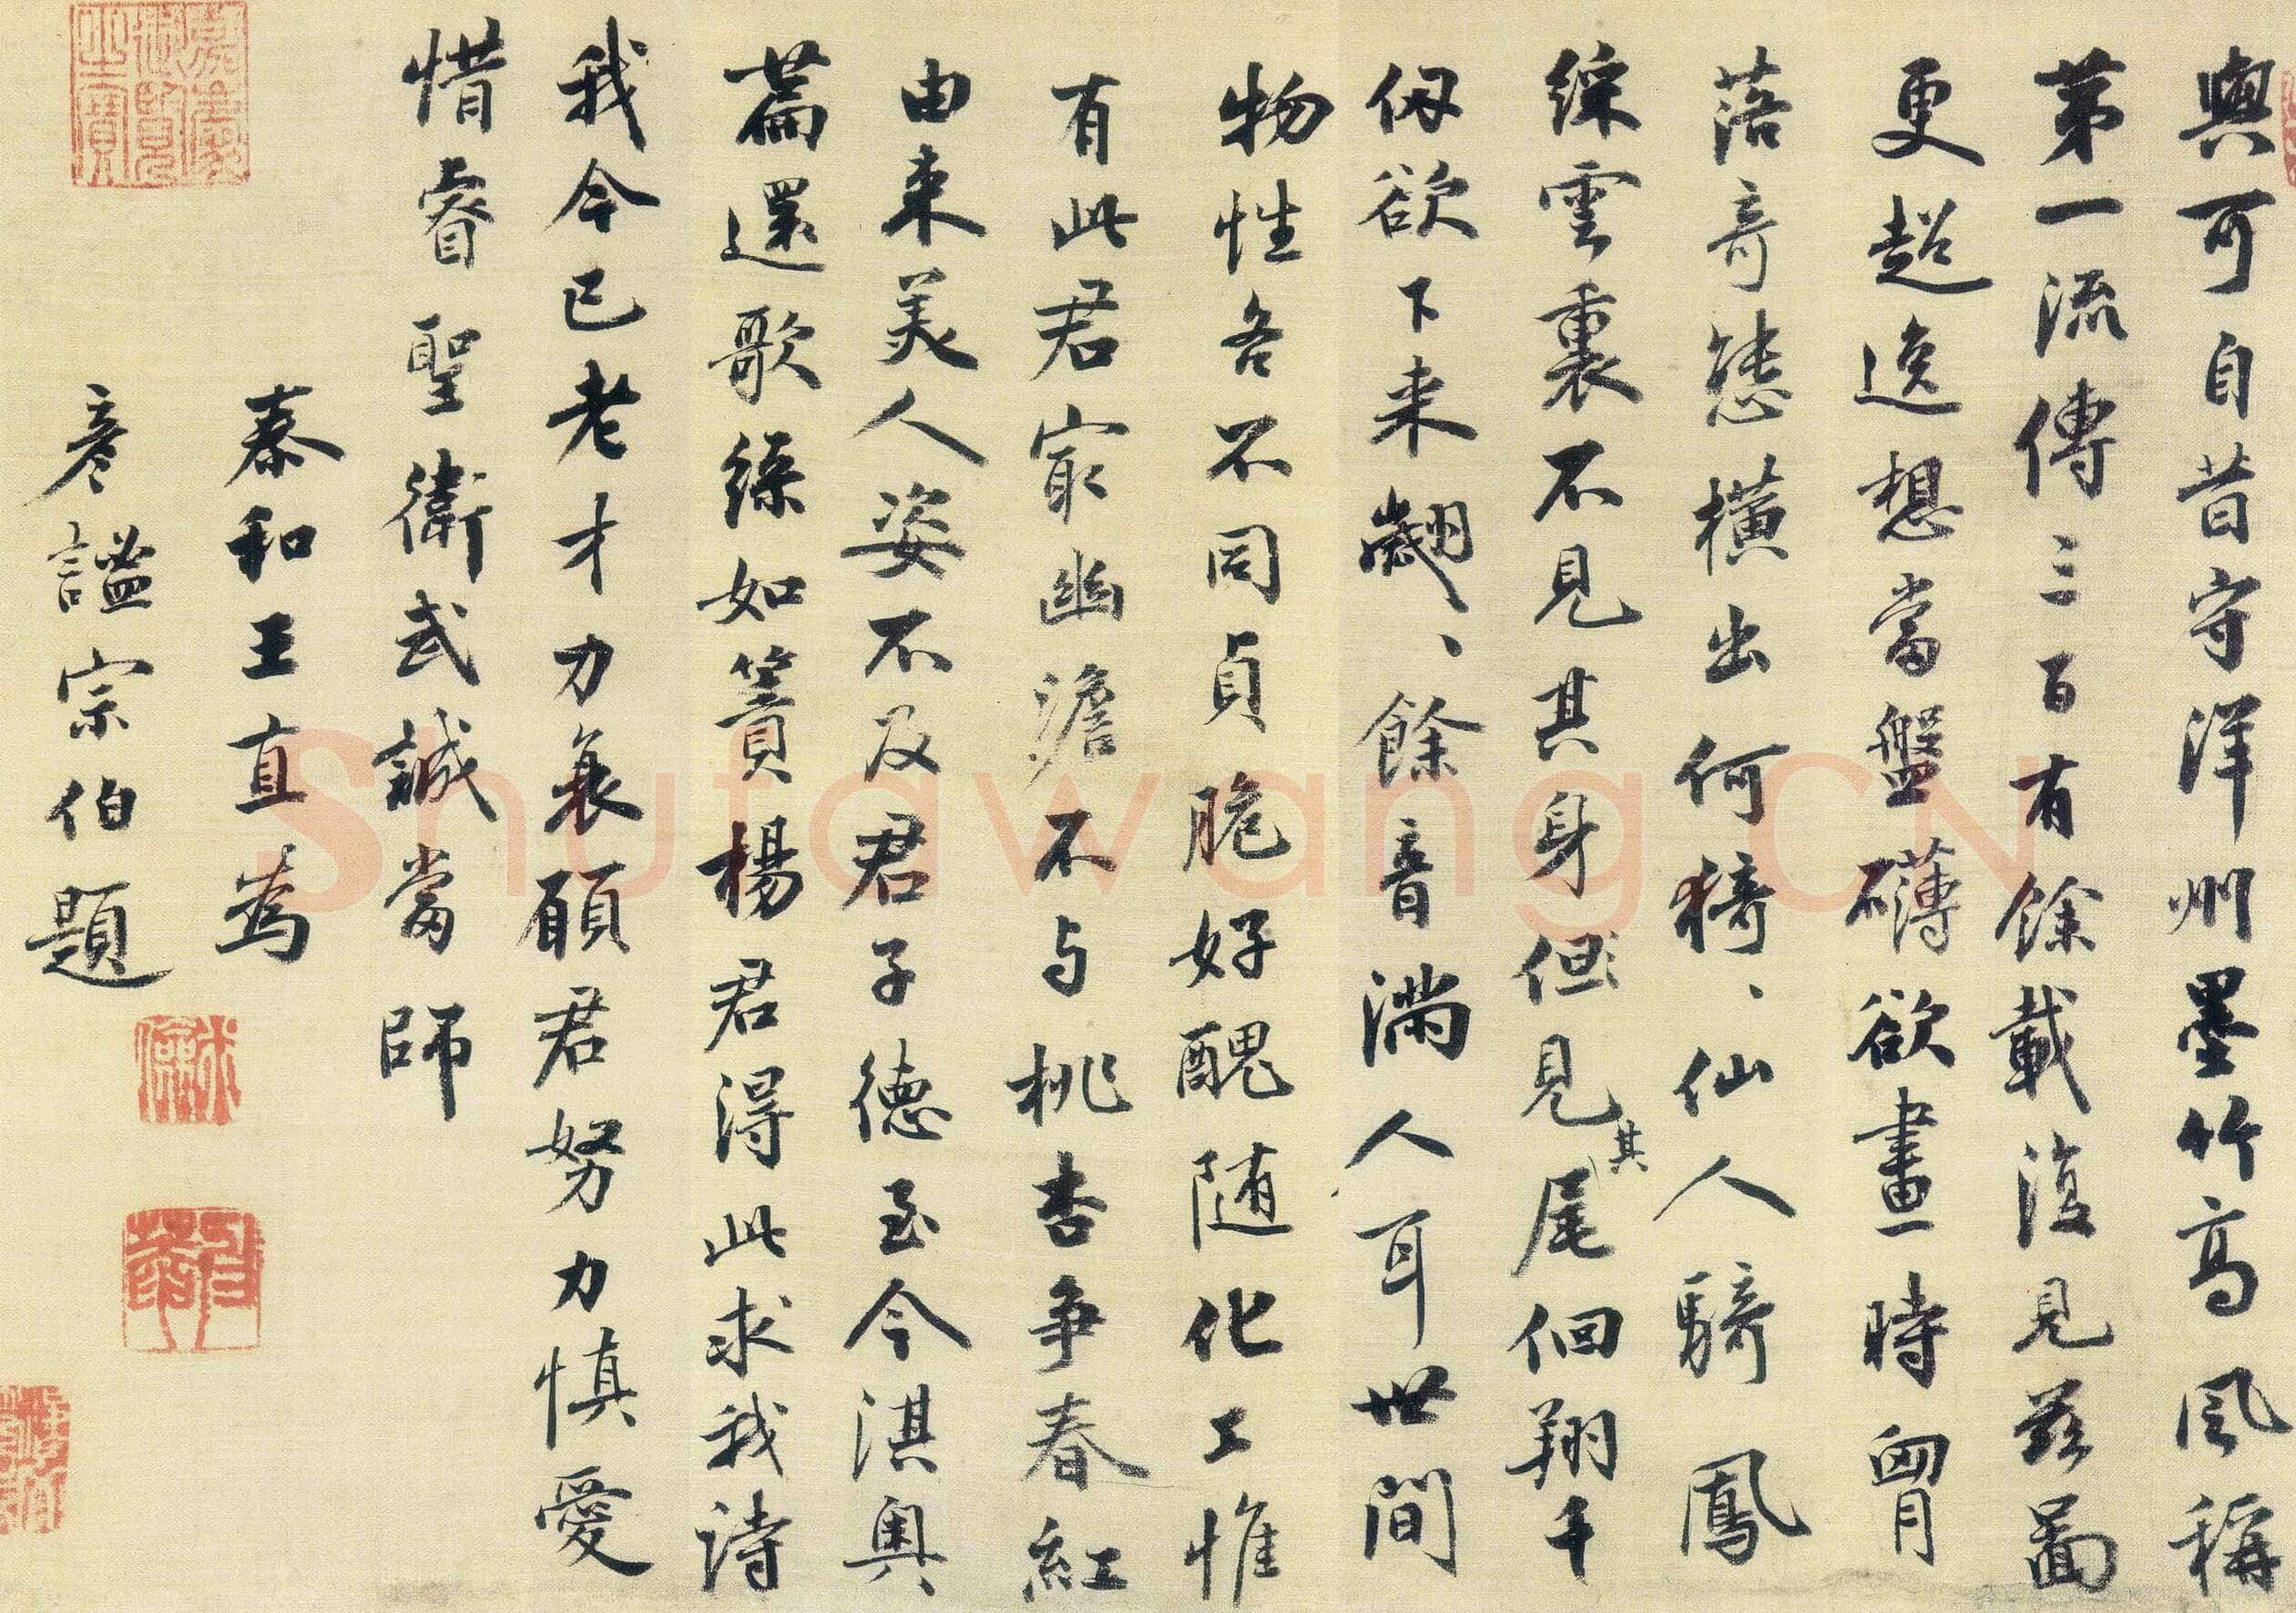 與可自昔守洋州墨竹高風稱
第一流傳三百有餘載復見茲圖
更超逸想當盤礴欲畫時胷
落奇態橫出何猗、仙人騎鳳
綵雲裏不見其身但見其尾佪翔千
仭欲下来翽、餘音滿人耳世間
物性各不同貞脆好醜随化工惟
有此君冣幽澹不与桃杏争春紅
由来美人姿不及君子德至今淇奧
篇還歌綠如簀楊君得此求我詩
我今已老才力衰願君努力慎愛
惜睿聖衛武誠當師
泰和王直為
彦謐宗伯題
嘉慶御覽之寶
Shufawang.CN